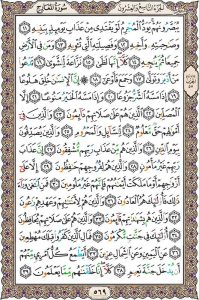 سُورَةُ المَعَارِجِ الجُزْءُ التَّاسِعُ وَالعِشْرُونَ
يُبَصَّرُونَهُمْ يَوَدُّ الْمُجْرِمُ لَوْ يَفْتَدِي مِنْ عَذَابِ يَوْمِئِذٍ بِبَنِيهِ ١١
وَصَٰحِبَتِهِ وَأَخِيهِ ١٢ وَفَصِيلَتِهِ الَّتِي تُـْٔوِيهِ ١٣ وَمَن فِي الْأَرْضِ
جَمِيعًا ثُمَّ يُنجِيهِ ١٤ كَلَّا إِنَّهَا لَظَىٰ ١٥ نَزَّاعَةً لِّلشَّوَىٰ ١٦ تَدْعُوا
مَنْ أَدْبَرَ وَتَوَلَّىٰ ١٧ وَجَمَعَ فَأَوْعَىٰ ١٨ إِنَّ الْإِنسَٰنَ خُلِقَ هَلُوعًا
١٩ إِذَا مَسَّهُ الشَّرُّ جَزُوعًا ٢٠ وَإِذَا مَسَّهُ الْخَيْرُ مَنُوعًا ٢١ إِلَّا
الْمُصَلِّينَ ٢٢ الَّذِينَ هُمْ عَلَىٰ صَلَاتِهِمْ دَائِمُونَ ٢٣ وَالَّذِينَ فِي
أَمْوَٰلِهِمْ حَقٌّ مَّعْلُومٌ ٢٤ لِّلسَّائِلِ وَالْمَحْرُومِ ٢٥ وَالَّذِينَ يُصَدِّقُونَ
بِيَوْمِ الدِّينِ ٢٦ وَالَّذِينَ هُم مِّنْ عَذَابِ رَبِّهِم مُّشْفِقُونَ ٢٧ إِنَّ عَذَابَ
رَبِّهِمْ غَيْرُ مَأْمُونٍ ٢٨ وَالَّذِينَ هُمْ لِفُرُوجِهِمْ حَٰفِظُونَ ٢٩ إِلَّا عَلَىٰ
أَزْوَٰجِهِمْ أَوْ مَا مَلَكَتْ أَيْمَٰنُهُمْ فَإِنَّهُمْ غَيْرُ مَلُومِينَ ٣٠ فَمَنِ ابْتَغَىٰ
وَرَاءَ ذَٰلِكَ فَأُولَٰئِكَ هُمُ الْعَادُونَ ٣١ وَالَّذِينَ هُمْ لِأَمَٰنَٰتِهِمْ وَعَهْدِهِمْ
رَٰعُونَ ٣٢ وَالَّذِينَ هُم بِشَهَٰدَٰتِهِمْ قَائِمُونَ ٣٣ وَالَّذِينَ هُمْ عَلَىٰ صَلَاتِهِمْ
يُحَافِظُونَ ٣٤ أُولَٰئِكَ فِي جَنَّٰتٍ مُّكْرَمُونَ ٣٥ فَمَالِ الَّذِينَ كَفَرُوا قِبَلَكَ مُهْطِعِينَ
٣٦ عَنِ الْيَمِينِ وَعَنِ الشِّمَالِ عِزِينَ ٣٧ أَيَطْمَعُ كُلُّ امْرِئٍ مِّنْهُمْ
أَن يُدْخَلَ جَنَّةَ نَعِيمٍ ٣٨ كَلَّا إِنَّا خَلَقْنَٰهُم مِّمَّا يَعْلَمُونَ ٣٩
٥٦٩